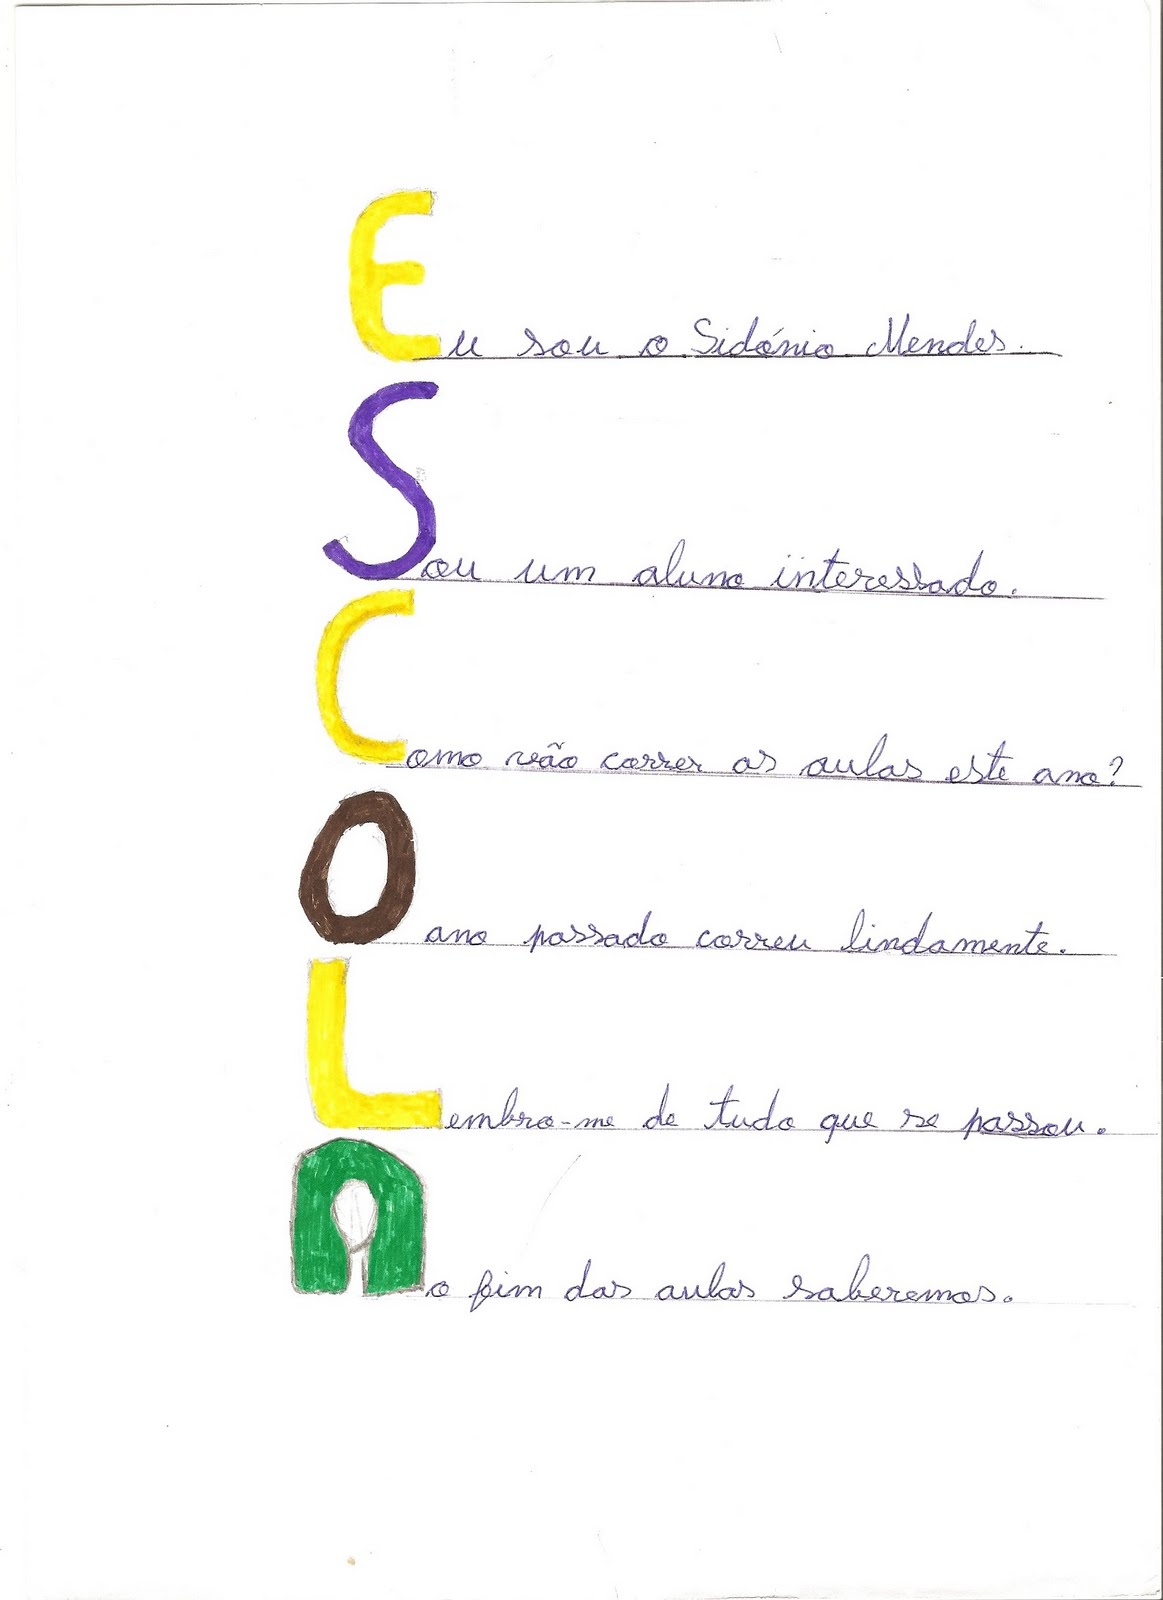 Eu sou o Sidónio Mendes.
Sou um aluno interessado.
Como vão correr as aulas este ano?
O ano passado correu lindamente.
Lembro-me de tudo que se passou.
Ao fim das aulas saberemos.